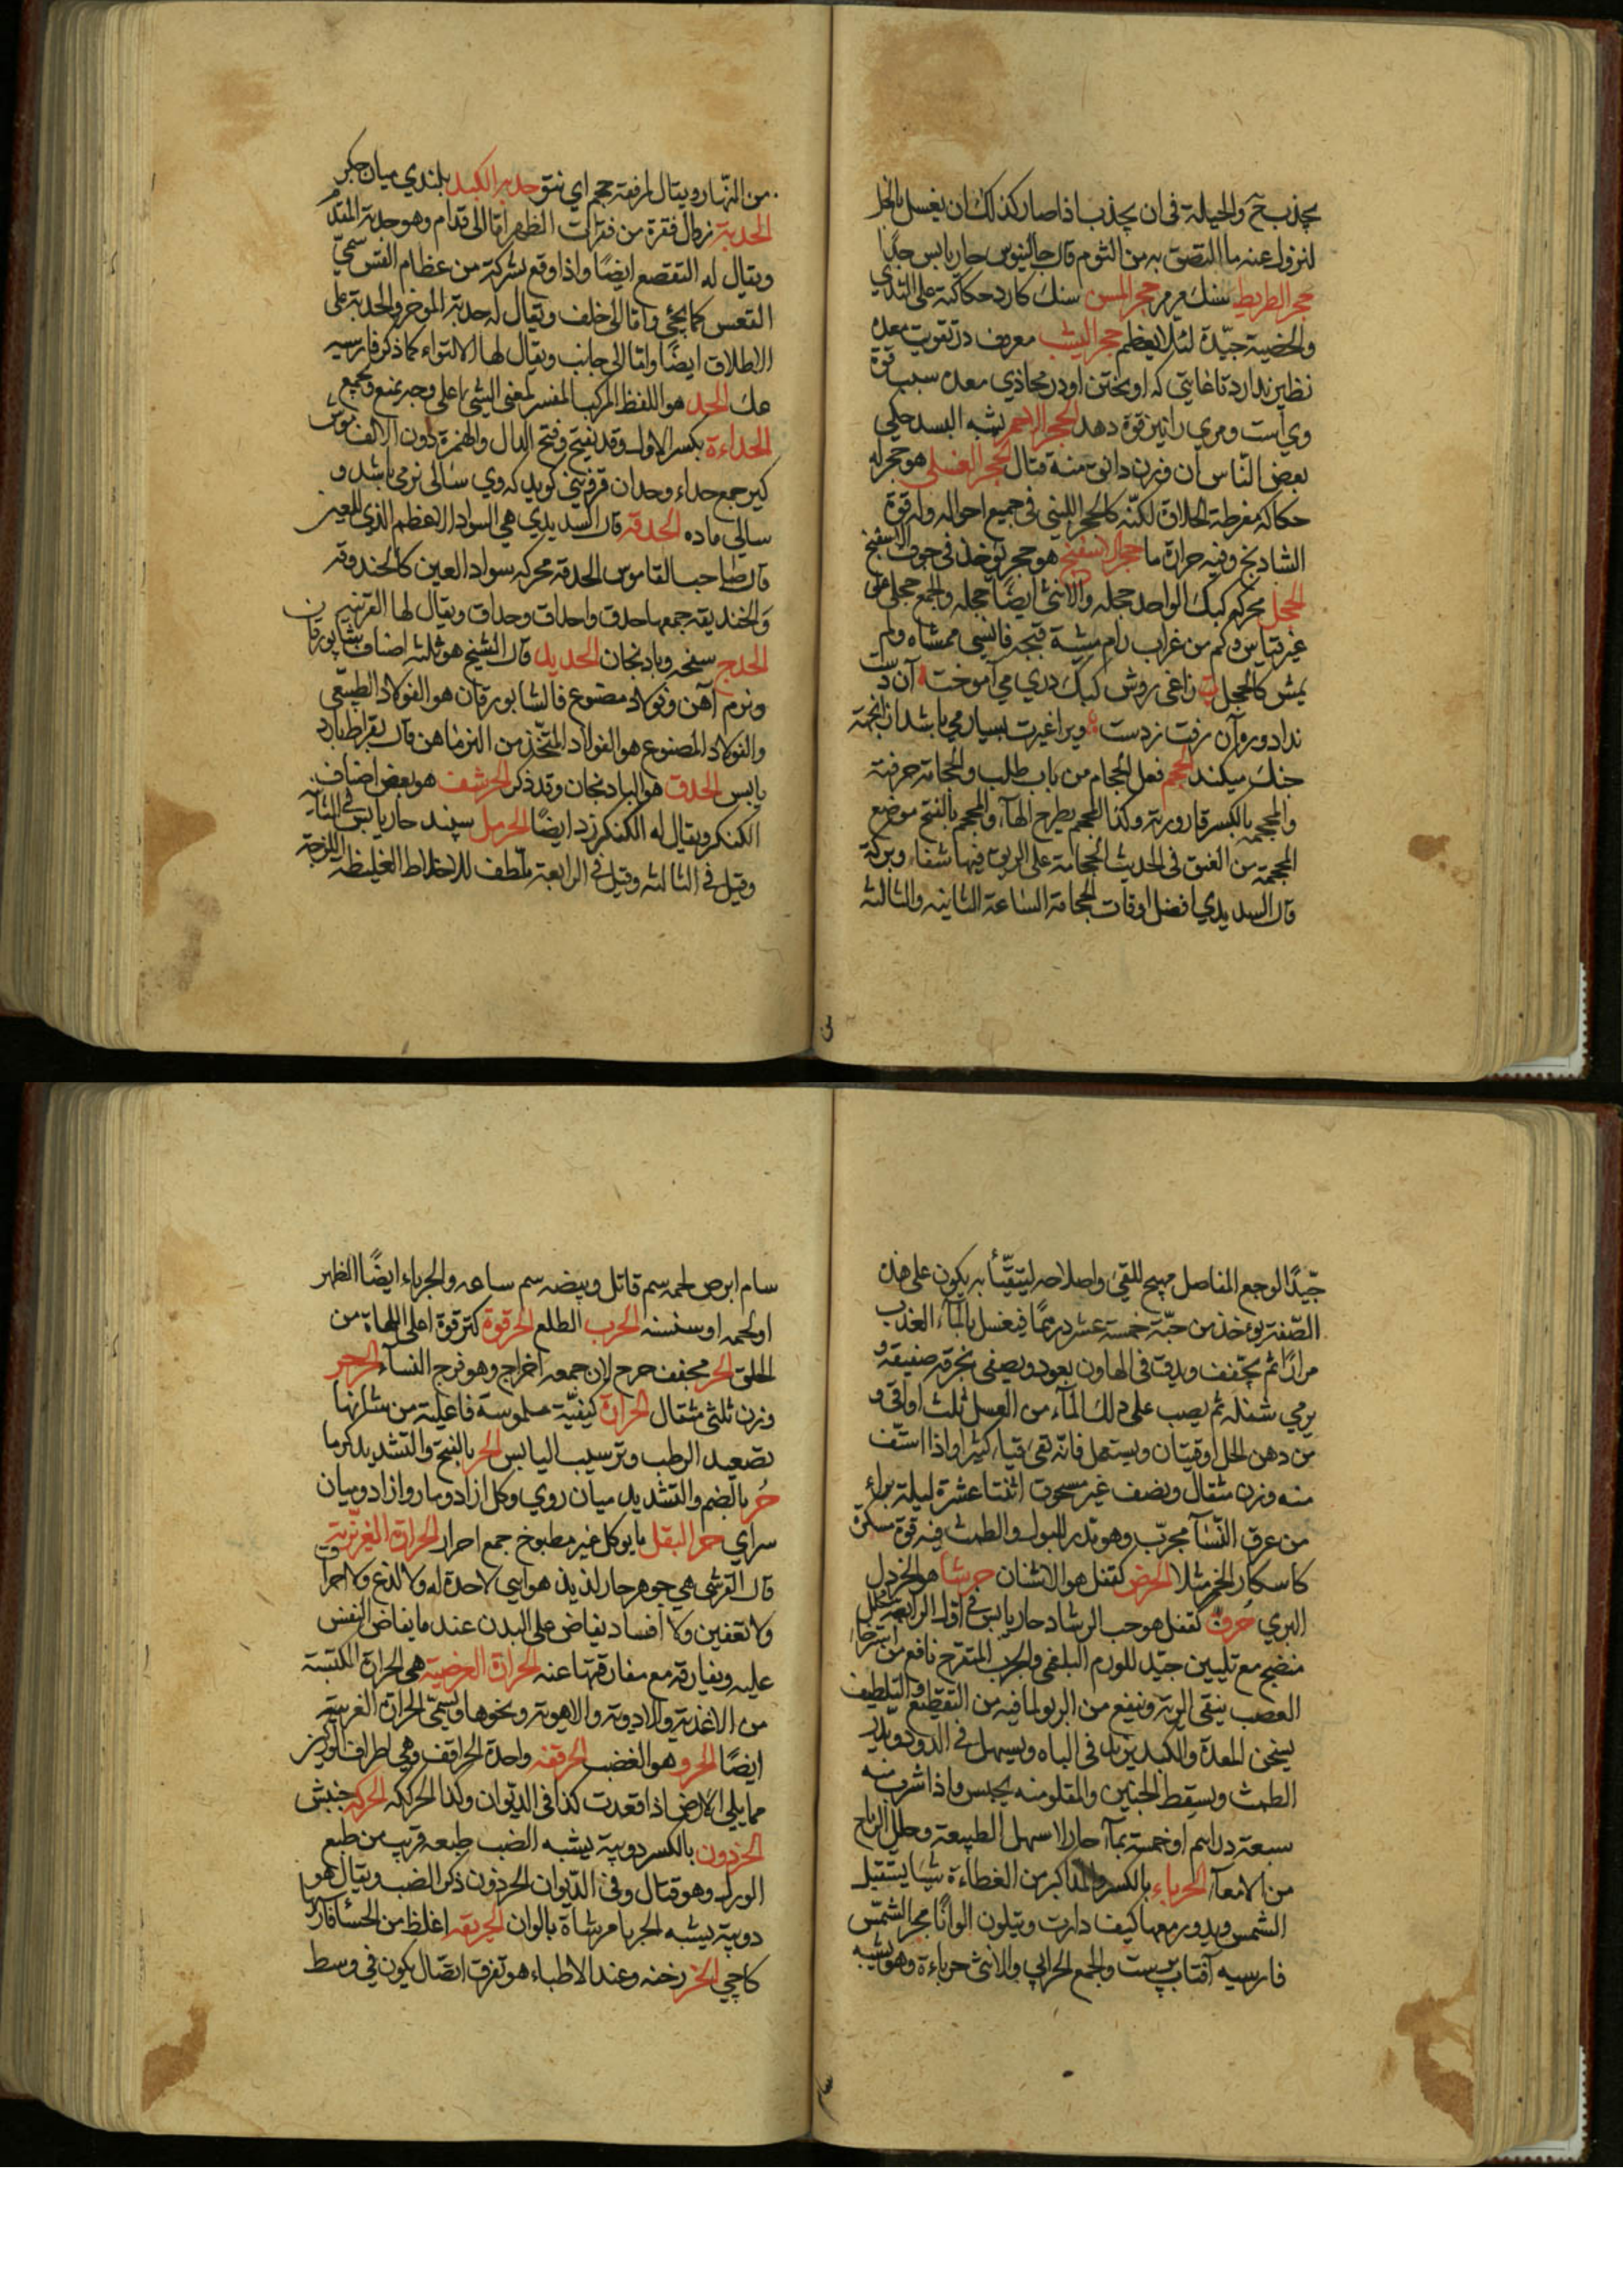 يجذب خَ والحيلة فى ان يجذب اذا صار كذلك ان يغسل بالخل
لنزول عنه ما التصق به من الثوم قال جالينوس حار يابس جدًا
حجر الطريط سنك مرمر حجر المسن سنك كارد حكاكته على الثدي
والخصية جيّدة لئلا يعظم حجر اليشب معروف در تقويت معده
نظير ندارد تا غايتى كه اويختن او در محاذي معده سبب قوة
وي است ومري را نيز قوة دهد الحجر الاحمر يشبه البسد حكي
بعض النّاس ان وزن دانق منه قتال الحجر العسلي هو حجر له
حكاكة مفرطة الحلاوة لكنّه كالحجر اللبنى فى جميع احواله وله قوة
الشادنج وفيه حرارة ما حجر الاسفنج هو حجر يوخذ فى جوف الاسفنج
الحجل محركه كبك الواحد حجله والانثى ايضًا حجله والجمع حجلى على
غير قياس وكم من غراب رام مشية قبجه فانسى ممشاه ولم
يمش كالحجل زاغى روش كبك دري مي آموخت آن دست
نداد وروآن رفت زدست ويرا غيرت بسيار مي باشد از انجمة
جنك ميكند الحجم فعل الحجام من باب طلب والحجامة حرفته
والمحجمه بالكسر قارورته وكذا المحجم بطرح الهاء والمحجم بالفتح موضع
المحجمة من العنق فى الحديث الحجامة على الريق فيها شفاء وبركة
قال السديدي افضل اوقات الحجامة الساعة الثانيه والثالثه
من النّهار ويقال لمرفقه حجم اي نتو حدبه الكبد بلندي ميان جكر
الحدبة زوال فقرة من فقرات الظهر امّا الى قدام وهو حدبة المقدم
ويقال له التقصع ايضًا واذا وقع بشركة من عظام القس سمّي
القعس كما يجئ وامّا الى خلف ويقال له حدبة الموخر والحدبة على
الاطلاق ايضًا وامّا الى جانب ويقال لها الالتواء كما ذكر فارسيه
الحد هو اللفظ المركب المفسر لمعنى الشئ اعلى وجه يمنع ويجمع
الحداءة بكسر الاول وقد يفتح وفتح الدال والهمزة دون الالف موش
كير جمع حداء وحدان قزوينى كويد كه وي سالى نر مي باشد و
سالى ماده الحدقه قال السديدي هي السواد الاعظم الذي للعين
قال صاحب القاموس الحدقه محركه سواد العين كالحندوقه
والحنديقه جمعها حدق واحداق وحداق ويقال لها القرنيه
الحدج سفحه وبادنجان الحديد قال الشيخ هو ثلثه اصناف شابورقان
ونرم آهن وفولاذ مصنوع فالشابورقان هو الفولاذ الطبيعى
والفولاذ المصنوع هو الفولاد المتّخذ من النرماهن قال بقراط بارد
يابس الحدق هو البادنجان وقد ذكر الحرشف هو بعض اصناف
الكنكر ويقال له الكنكرزد ايضًا الحرمل سپند حار يابس فى الثانيه
وقيل فى الثالثه وقيل فى الرابعة ملطف للاخلاط الغليظه اللزجة
جيّدًا لوجع المفاصل مهيج للقئ واصلاحه ليتقيّأ به يكون على هذه
الصّفة يوخذ من حبّه خمسة عشر درهمًا فيغسل بالماء العذب
مرارًا ثم يجفّف ويدق فى الهاون بعود ويصفى بخرقه صفيقه و
يرمي بثفله ثم يصب على ذلك الماء من العسل ثلث اواقى و
من دهن الحل اوقيتان ويستعمل فانّه تقئ قياء كثيرا واذا استفّ
منه وزن مثقال ونصف غير مسحوق اثنتا عشرة ليلة براء
من عرق النّسا مجرّب وهو تدر البول والطمث فيه قوة مسكرة
كاسكار الخمر مثلا الحرض كقفل هو الاشنان حرشا هو الخردل
البري حُرف كقفل هو حب الرشاد حار يابس فى اول الرابعة محلل
منضج مع تليين جيّد للورم البلغمى والجرب المتقرح نافع من استرخاء
العصب ينقى الرية وينفع من الربو لما فيه من التقطيع والتلطيف
يسخن المعدة والكبد يزيد فى الباه ويسهل فى الدود ويدر
الطمث ويسقط الجنين والمقلو منه يحبس واذا شرب منه
سبعة دراهم او خمسة بماء حار لاسهل الطبيعة وحلل الرياح
من الامعاء الحرباء بالكسر والمد اكبر من العظاءة شيئا يستقبل
الشمس ويدور معها كيف دارت ويتلون الوانًا بحر الشمس
فارسيه آفتاب پرست والجمع الحرابي والانثى حرباءة وهو يشبه
سام ابرص لحمه سم قاتل وبيضه سم ساعه والحرباء ايضًا الظهر
او لحمه او سنسنه الحرب الطلع الحرقوة كترقوة اعلى اللهاة من
الحلق الحر مخفف حرح لان جمعه احراج وهو فرج النساء الحر
وزن ثلثى مثقال الحرارة كيفيّة ملموسة فاعلية من شانها
تصعيد الرطب وترسيب اليابس الحر بالفتح والتشديد كرما
حُر بالضم والتشديد ميان روي وكل ازاد ومار وازاد وميان
سراي حر البقل ما يوكل غير مطبوخ جمع احرار الحرارة الغريزية
قال القرشى هي جوهر حار لذيذ هوايى لا حدة له ولا لذع ولا احراق
ولا تعفين ولا افساد يفاض على البدن عند ما يفاض النفس
عليه ويفارقه مع مفارقتها عنه الحرارة العرضية هى الحرارة المكتسبة
من الاغذية والادوية والاهوية ونحوها ويسمّى الحرارة الغريبة
ايضًا الحرو هو الغضب الحرقفه واحدة الحراقف وهي اطراف الوركين
مما يلى الارض اذا قعدت كذا فى الديوان وكذا الحرككه الحركه جنبش
الحرذون بالكسر دويبة يشبه الضب طبعه قريب من طبع
الورل وهو قتال وفى الديوان الحرذون ذكر الضب ويقال هو
دويبة يشبه الحربا مرشاة بالوان الحريقه اغلظ من الحسا
كاچي الحز رخنه وعند الاطباء هو تفرق اتصال يكون فى وسط